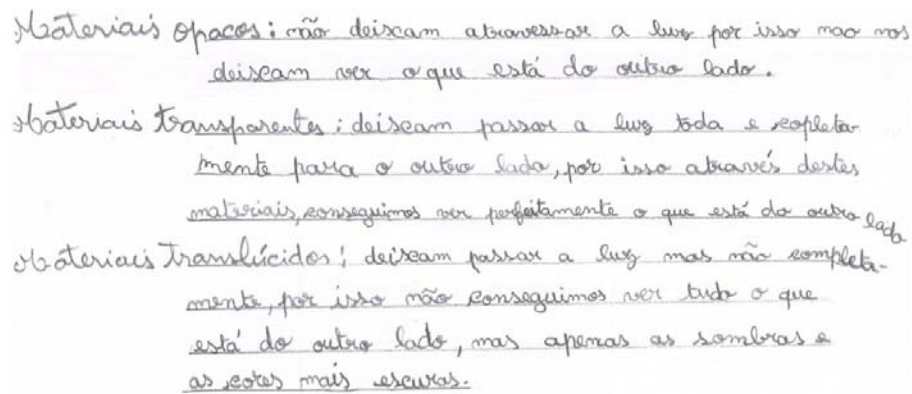 Materiais opacos: não deixam atravessar a luz por isso nao nos
deixam ver o que está do outro lado.
Materiais transparentes: deixam passar a luz toda e copleta-
mente para o outro lada, por isso através destes
materiais, conseguimos ver perfeitamente o que está do outro lado
Materiais translúcidos: deixam passar a luz mas não completa-
mente, por isso não conseguimos ver tudo o que
está do outro lado, mas apenas as sombras e
as cores mais escuras.